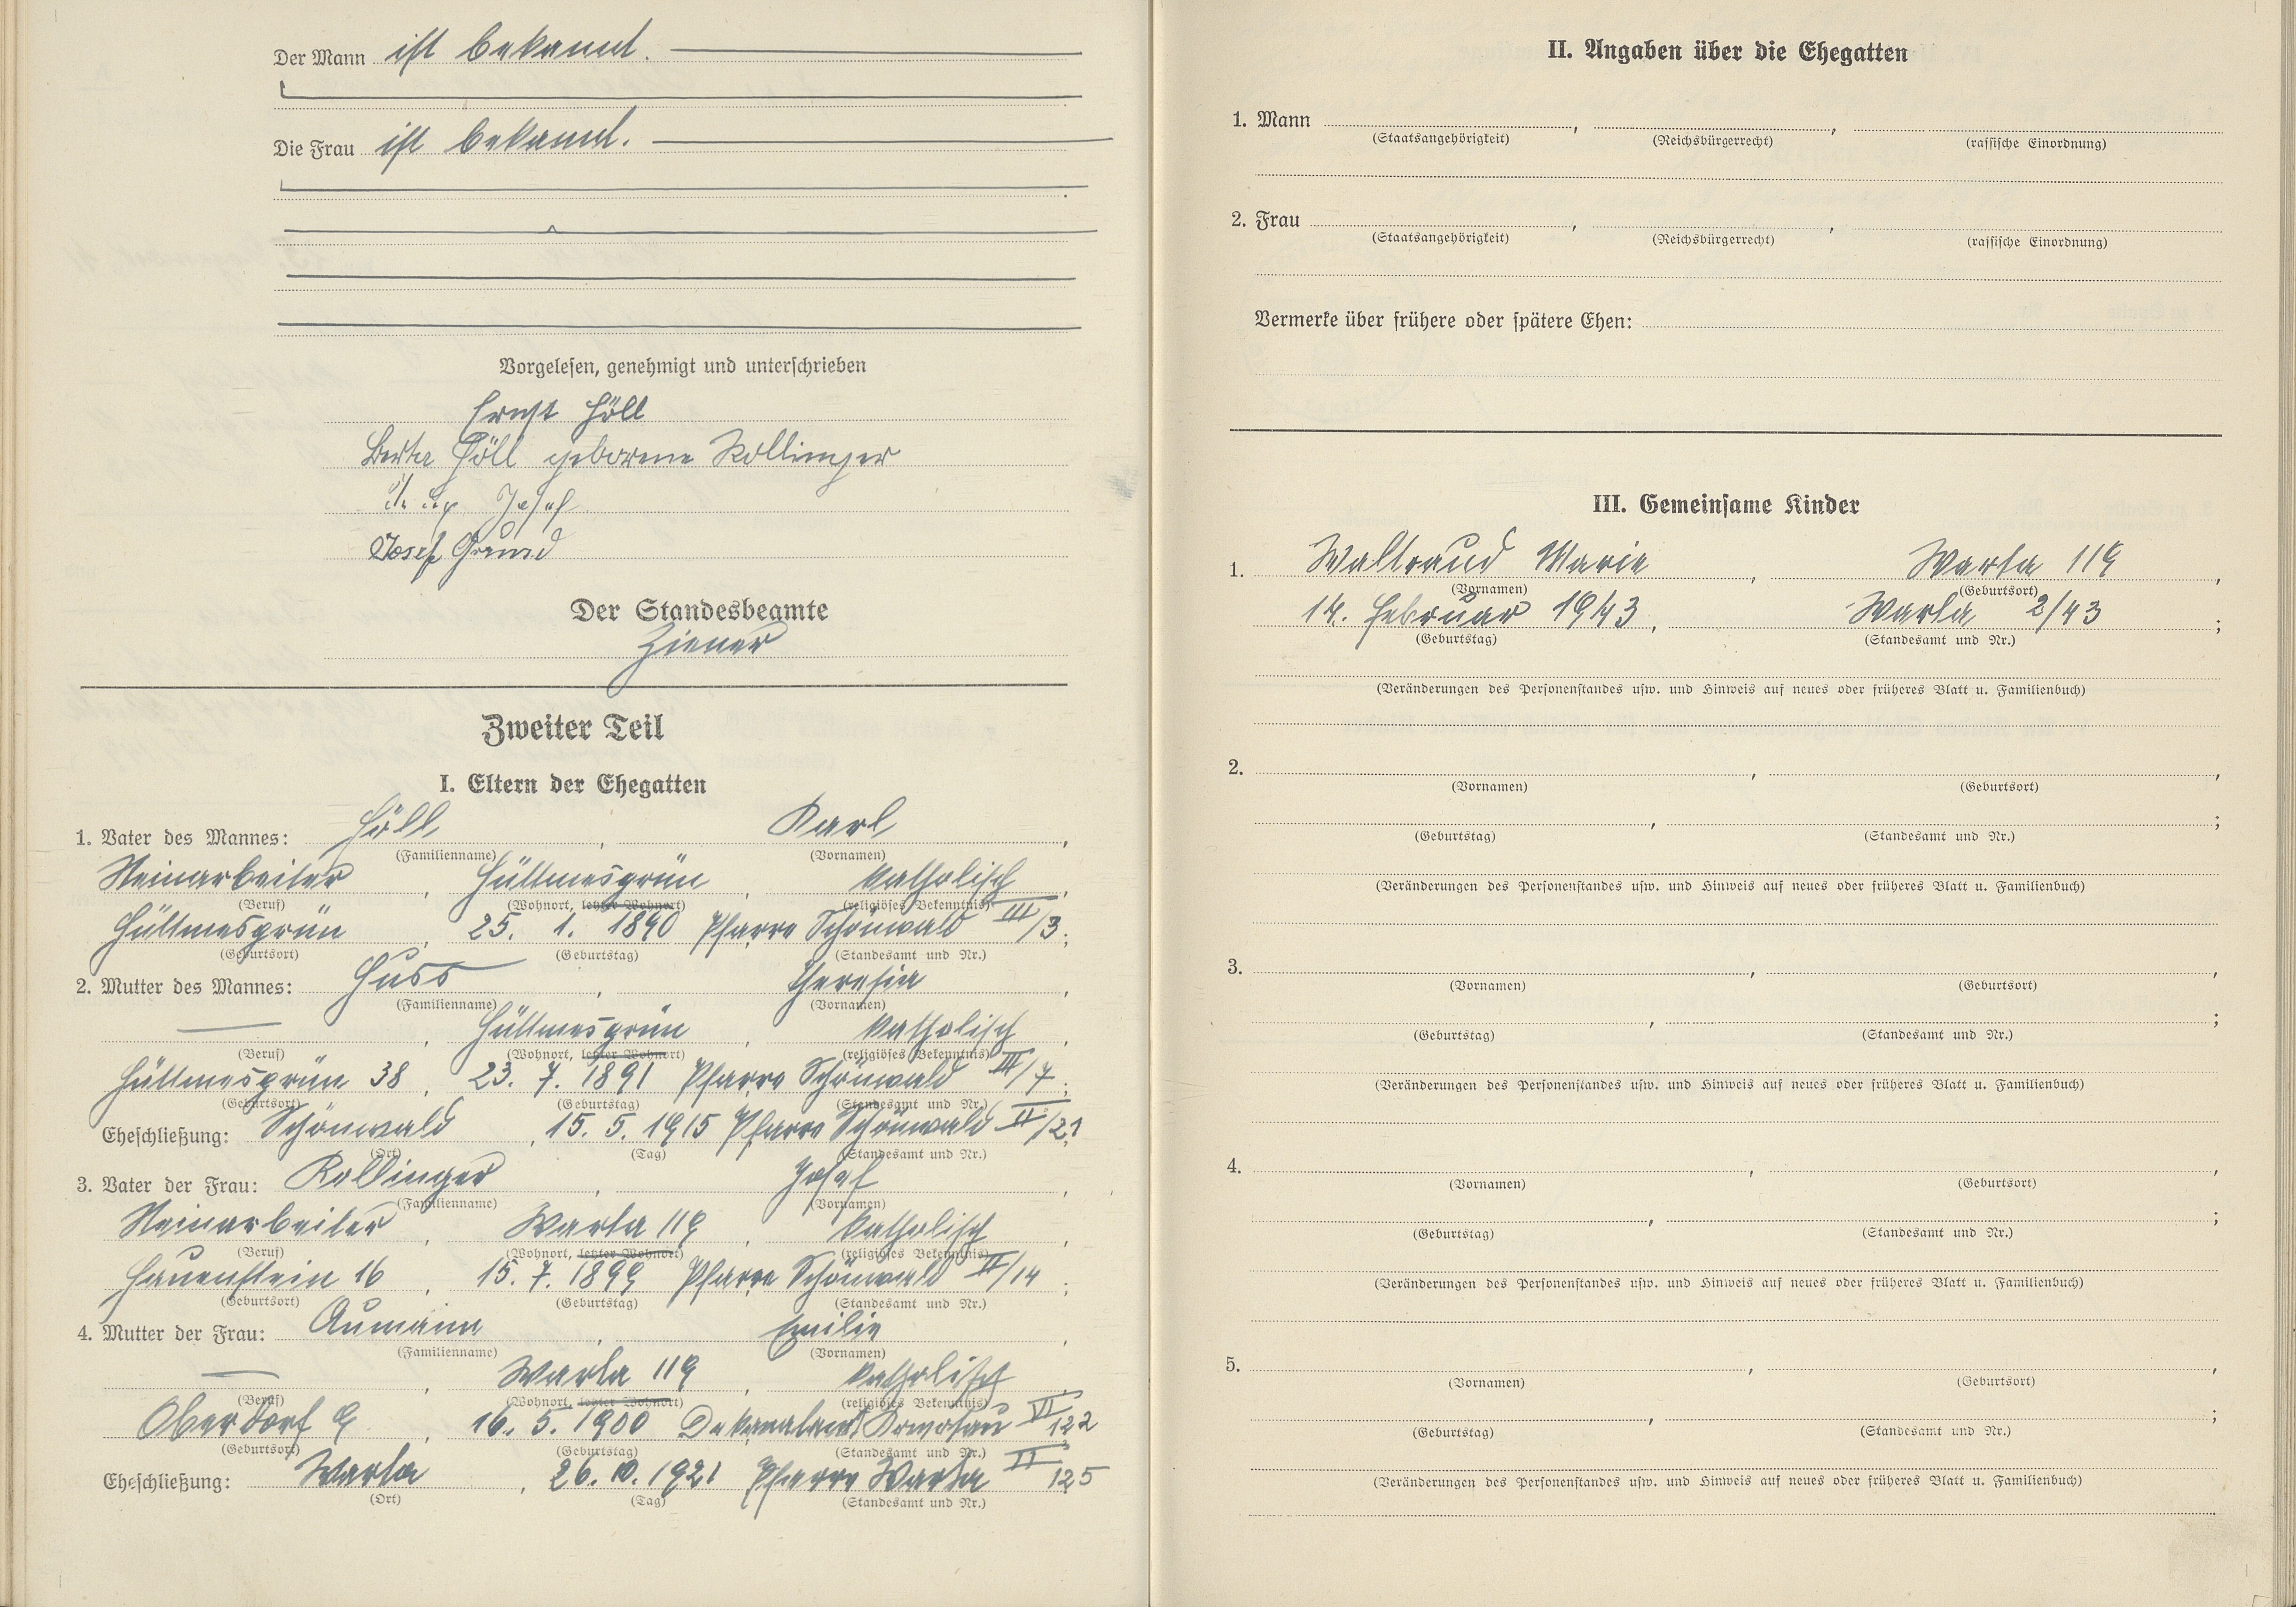 Der Mann ist bekannt.
Die Frau ist bekannt.
Vorgelesen, genehmigt und unterschrieben
Ernst Höll
Berta Höll geborene Kollinger
Josef
Josef Grund
Der Standesbeamte
Ziener
Zweiter Teil
I. Eltern der Ehegatten
1. Vater des Mannes: Höll, Karl,
(Familienname) (Vornamen)
Steinarbeiter, Hüttmesgrün, katholisch,
(Beruf) (Wohnort, letzter Wohnort) (religiöses Bekenntnis)
Hüttmesgrün, 25. 1. 1890 Pfarre Schönwald III/3;
(Geburtsort) (Geburtstag) (Standesamt und Nr.)
2. Mutter des Mannes: Huss, Theresia,
(Familienname) (Vornamen)
—, Hüttmesgrün, katholisch,
(Beruf) (Wohnort, letzter Wohnort) (religiöses Bekenntnis)
Hüttmesgrün 38, 23. 7. 1891 Pfarre Schönwald III/7;
(Geburtsort) (Geburtstag) (Standesamt und Nr.)
Eheschließung: Schönwald, 15. 5. 1915 Pfarre Schönwald II/21
(Ort) (Tag) (Standesamt und Nr.)
3. Vater der Frau: Kollinger, Josef,
(Familienname) (Vornamen)
Steinarbeiter, Warta 119, katholisch,
(Beruf) (Wohnort, letzter Wohnort) (religiöses Bekenntnis)
Hauenstein 16, 15. 7. 1899 Pfarre Schönwald II/14;
(Geburtsort) (Geburtstag) (Standesamt und Nr.)
4. Mutter der Frau: Aumann, Emilie,
(Familienname) (Vornamen)
—, Warta 119, katholisch,
(Beruf) (Wohnort, letzter Wohnort) (religiöses Bekenntnis)
Oberdorf 9, 16. 5. 1900 Dekanalamt Komotau VI 122
(Geburtsort) (Geburtstag) (Standesamt und Nr.)
Eheschließung: Warta, 26. 10. 1921 Pfarre Warta II 125
(Ort) (Tag) (Standesamt und Nr.)
II. Angaben über die Ehegatten
1. Mann , ,
(Staatsangehörigkeit) (Reichsbürgerrecht) (rassische Einordnung)
2. Frau , ,
(Staatsangehörigkeit) (Reichsbürgerrecht) (rassische Einordnung)
Vermerke über frühere oder spätere Ehen:
III. Gemeinsame Kinder
1. Waltraud Marie, Warta 119,
(Vornamen) (Geburtsort)
14. Februar 1943, Warta 2/43;
(Geburtstag) (Standesamt und Nr.)
(Veränderungen des Personenstandes usw. und Hinweis auf neues oder früheres Blatt u. Familienbuch)
2. , ,
(Vornamen) (Geburtsort)
, ;
(Geburtstag) (Standesamt und Nr.)
(Veränderungen des Personenstandes usw. und Hinweis auf neues oder früheres Blatt u. Familienbuch)
3. , ,
(Vornamen) (Geburtsort)
, ;
(Geburtstag) (Standesamt und Nr.)
(Veränderungen des Personenstandes usw. und Hinweis auf neues oder früheres Blatt u. Familienbuch)
4. , ,
(Vornamen) (Geburtsort)
, ;
(Geburtstag) (Standesamt und Nr.)
(Veränderungen des Personenstandes usw. und Hinweis auf neues oder früheres Blatt u. Familienbuch)
5. , ,
(Vornamen) (Geburtsort)
, ;
(Geburtstag) (Standesamt und Nr.)
(Veränderungen des Personenstandes usw. und Hinweis auf neues oder früheres Blatt u. Familienbuch)